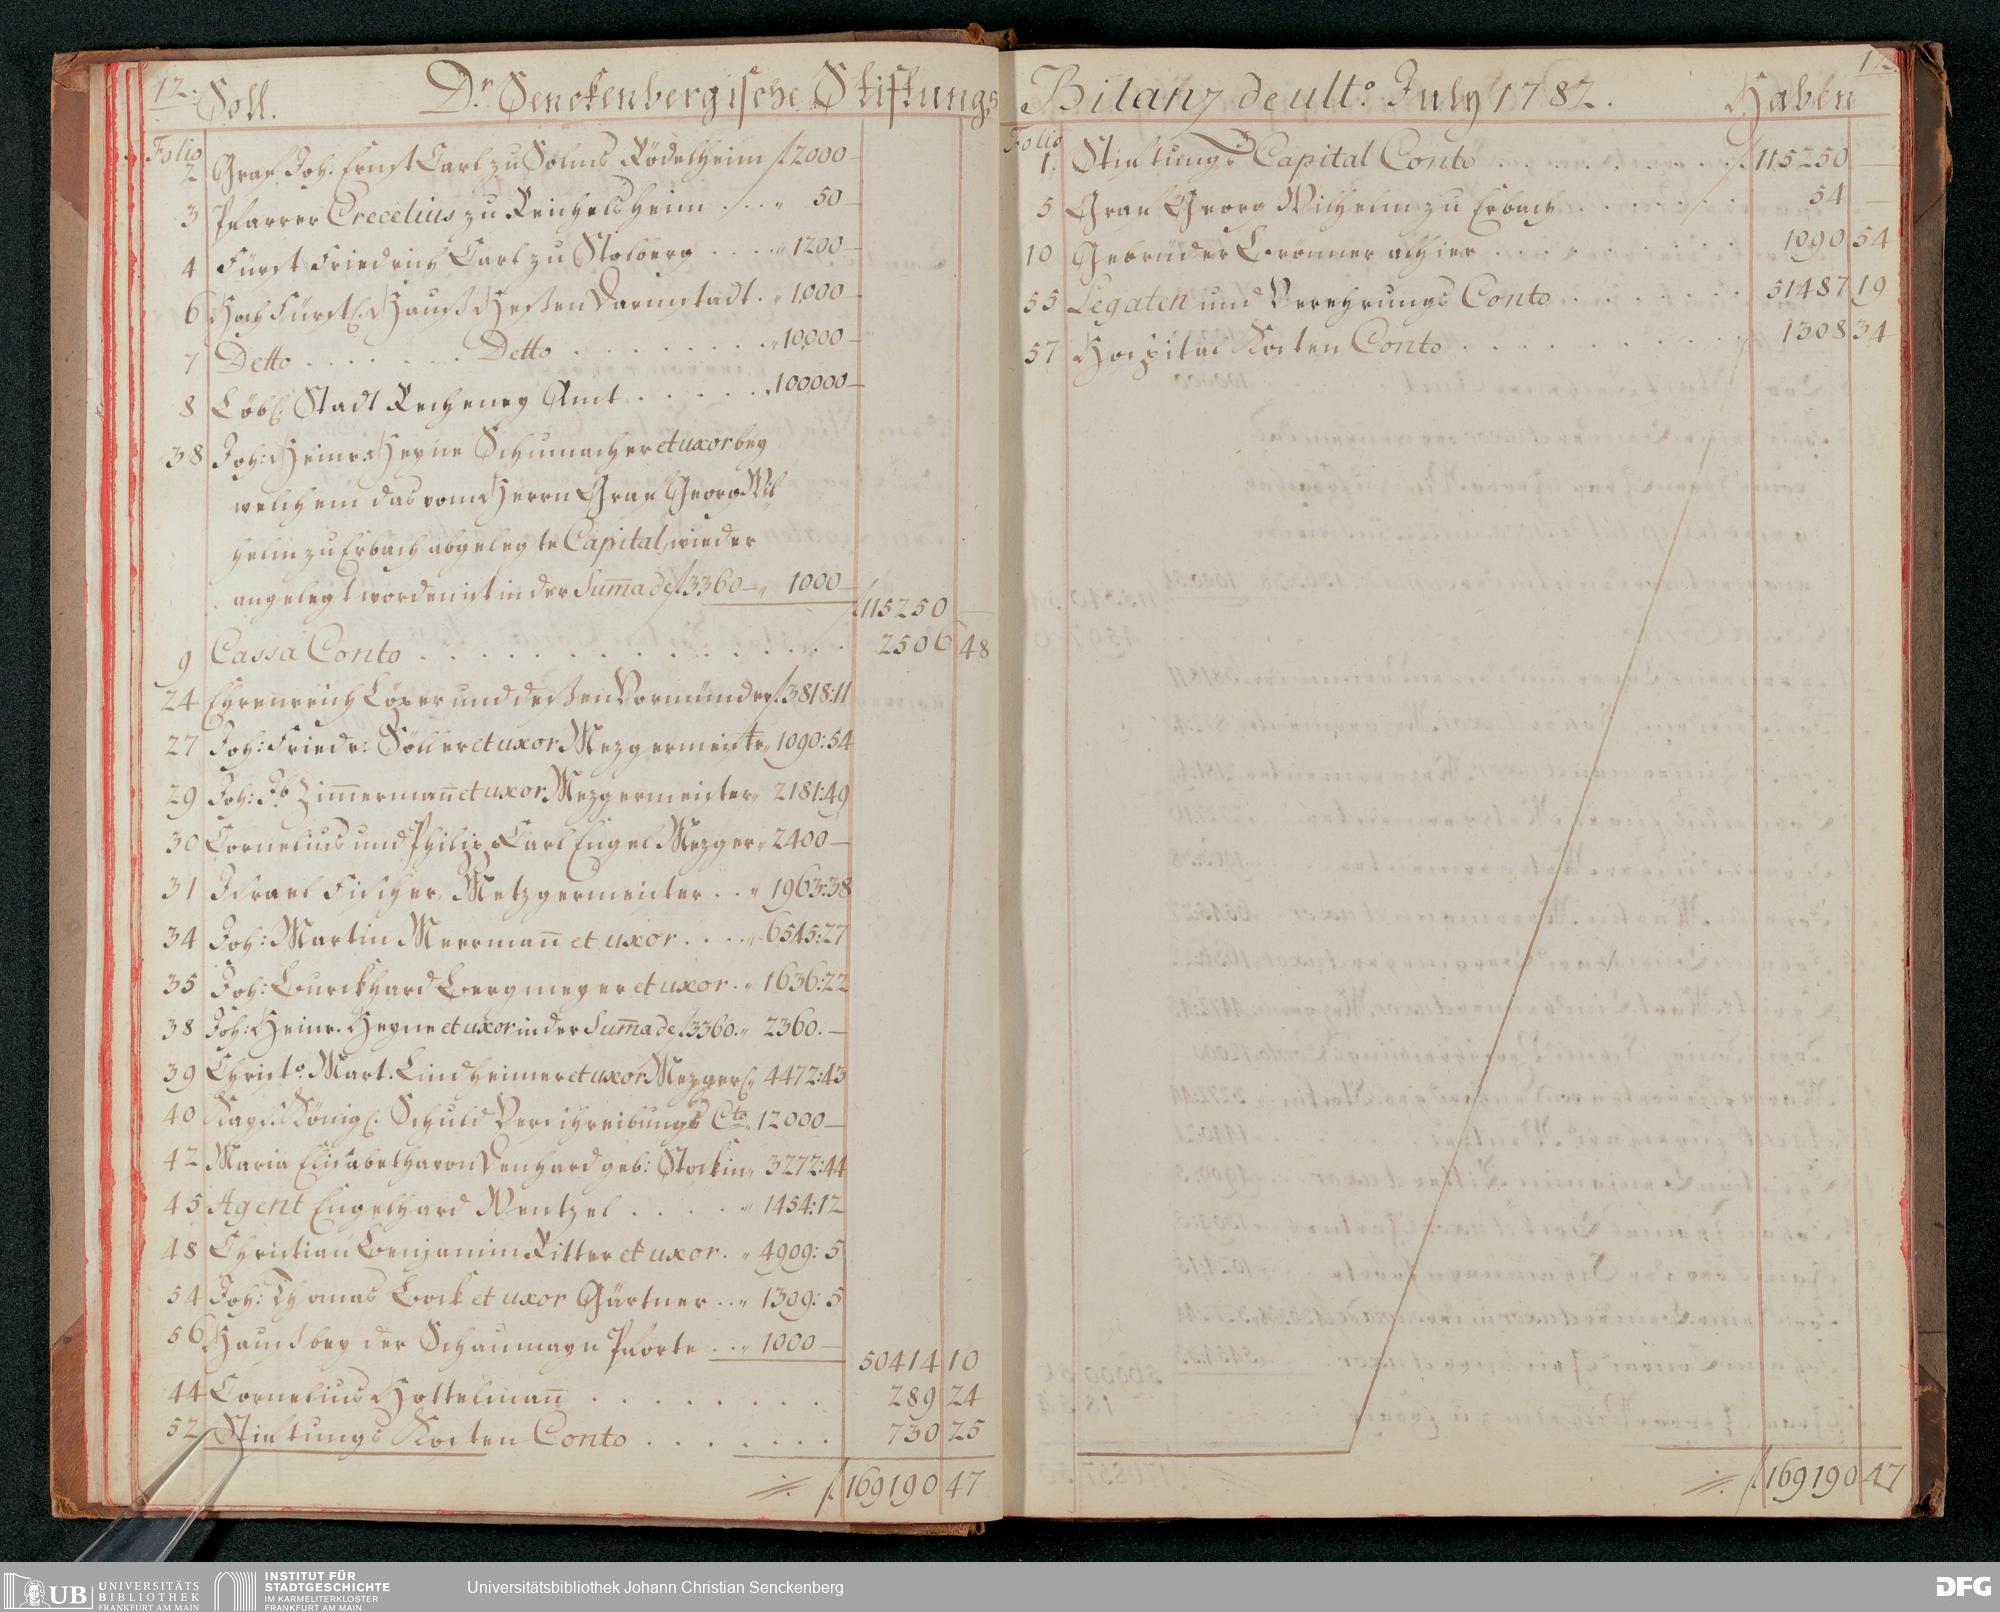 12. Soll. Dr Senckenbergische Stiftungs
Folio
2 Graf Joh. Ernst Carl zu Solms Rödelheim f. 2000 —
3 Pfarrer Crecelius zu Reichelsheim . . . " 50 —
4 Fürst Friedrich Carl zu Stolberg . . . . " 1200 —
6 Hochfürstl. Hauß Heßen Darmstadt . " 1000 —
7 Detto . . . . . . . Detto . . . . . . . . . " 10000 —
8 Löbl. Stadt Recheney Amt . . . . . . " 100000 —
38 Joh: Heinr. Heyne Schumacher et uxor bey
welchem das vom Herrn Graf Georg Wil
helm zu Erbach abgelegte Capital, wieder
angelegt worden ist in der Suma de f. 3360 — " 1000 —
f. 115250 —
9 Cassa Conto . . . . . . . . . . . . 2506 48
24 Ehrenreich Löser und deßen Vormünder f. 3818:11
27 Joh: Friedr: Söller et uxor Mezgermeister " 1090:54
29 Joh: Jb Zimerman et uxor Mezgermeister " 2181:49
30 Cornelius und Philip Carl Engel Mezger " 2400 —
31 Israel Fischer, Metzgermeister . . " 1963:38
34 Joh: Martin Meerman et uxor . . . . " 6545:27
35 Joh: Bourckhard Bergmeyer et uxor . " 1636:22
38 Joh: Heinr. Heyne et uxor in der Suma de f. 3360. " 2360. —
39 Christo. Mart. Lindheimer et uxor Mezger " 4472:43
40 Kays. Königl. Schuld Verschreibungs Cto " 12000 —
42 Maria Elisabetha von Denhard geb: Stockin " 3272:44
45 Agent Engelhard Wentzel . . . . . " 1454:12
48 Christian Benjamin Ritter et uxor . " 4909: 5
54 Joh: Thomas Bock et uxor Gärtner . . " 1309: 5
56 Hauß bey der Schaumayn Pforte . . " 1000 —
50414 10
44 Cornelius Hottelman . . . . . . . . 289 24
52 Stiftungs Kosten Conto . . . . . . . 730 25
f. 169190 47
Bilanz de ulto. July 1782. Haben 12.
Folio
1. Stiftungs Capital Conto . . . . . . . . . f. 115250 —
5 Graf Georg Wilhelm zu Erbach . . . . . . . 54 —
10 Gebrüder Bronner alhier . . . . . . . . . 1090 54
55 Legaten und Verehrungs Conto . . . . . . . 51487 19
57 Hospital Kosten Conto . . . . . . . . . . 1308 34
f. 169190 47
UB UNIVERSITÄTS
BIBLIOTHEK
FRANKFURT AM MAIN
INSTITUT FÜR
STADTGESCHICHTE
IM KARMELITERKLOSTER
FRANKFURT AM MAIN
Universitätsbibliothek Johann Christian Senckenberg
DFG